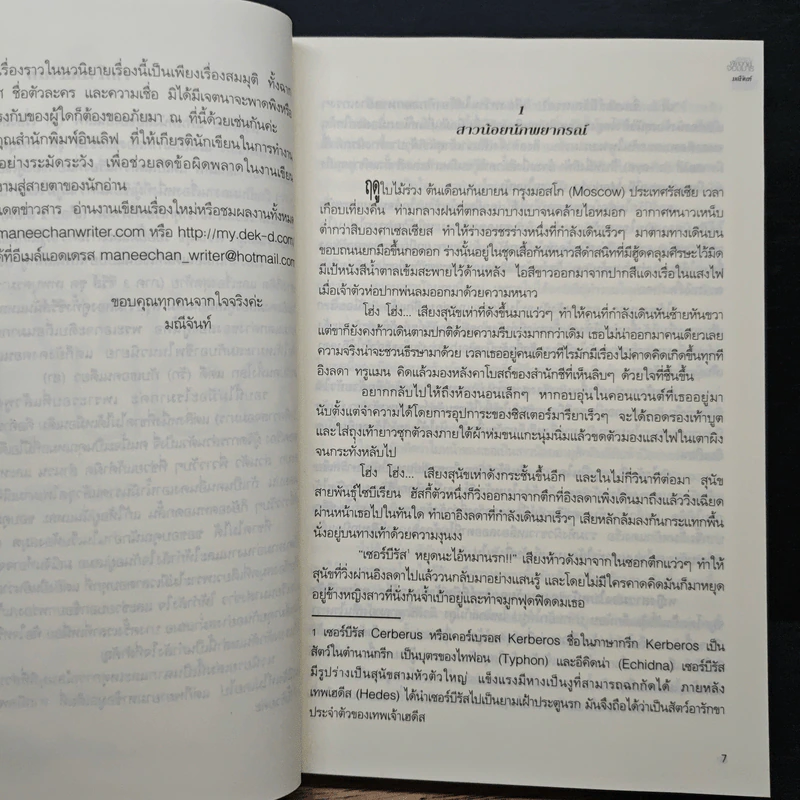 เรื่องราวในนวนิยายเรื่องนี้เป็นเพียงเรื่องสมมุติ ทั้งฉาก
ชื่อตัวละคร และความเชื่อ มิได้มีเจตนาจะพาดพิงหรือ
งกับของผู้ใดก็ต้องขออภัยมา ณ ที่นี้ด้วยเช่นกันค่ะ
คุณสำนักพิมพ์อินเลิฟ ที่ให้เกียรตินักเขียนในการทำงาน
อย่างระมัดระวัง เพื่อช่วยลดข้อผิดพลาดในงานเขียน
งามสู่สายตาของนักอ่าน
เดตข่าวสาร อ่านงานเขียนเรื่องใหม่หรือชมผลงานทั้งหมด
maneechanwriter.com หรือ http://my.dek-d.com
ด้ที่อีเมล์แอดเดรส maneechan_writer@hotmail.com
ขอบคุณทุกคนจากใจจริงค่ะ
มณีจันท์
มณีจันท์
1
สาวน้อยนักพยากรณ์
ฤดูใบไม้ร่วง ต้นเดือนกันยายน กรุงมอสโก (Moscow) ประเทศรัสเซีย เวลา
เกือบเที่ยงคืน ท่ามกลางฝนที่ตกลงมาบางเบาจนคล้ายไอหมอก อากาศหนาวเหน็บ
ต่ำกว่าสิบองศาเซลเซียส ทำให้ร่างอรชรร่างหนึ่งที่กำลังเดินเร็วๆ มาตามทางเดินบน
ขอบถนนยกมือขึ้นกอดอก ร่างนั้นอยู่ในชุดเสื้อกันหนาวสีดำสนิทที่มีฮู้ดคลุมศีรษะไว้มิด
มีเป้หนังสีน้ำตาลเข้มสะพายไว้ด้านหลัง ไอสีขาวออกมาจากปากสีแดงเรื่อในแสงไฟ
เมื่อเจ้าตัวห่อปากพ่นลมออกมาด้วยความหนาว
โฮ่ง โฮ่ง... เสียงสุนัขเห่าที่ดังขึ้นมาแว่วๆ ทำให้คนที่กำลังเดินหันซ้ายหันขวา
แต่ขาก็ยังคงก้าวเดินตามปกติด้วยความรีบเร่งมากกว่าเดิม เธอไม่น่าออกมาคนเดียวเลย
ความจริงน่าจะชวนธีรษามาด้วย เวลาเธออยู่คนเดียวทีไรมักมีเรื่องไม่คาดคิดเกิดขึ้นทุกที
อิงลดา ทรูแมน คิดแล้วมองหลังคาโบสถ์ของสำนักชีที่เห็นลิบๆ ด้วยใจที่ชื้นขึ้น
อยากกลับไปให้ถึงห้องนอนเล็กๆ หากอบอุ่นในคอนแวนต์ที่เธออยู่มา
นับตั้งแต่จำความได้โดยการอุปการะของซิสเตอร์มารียาเร็วๆ จะได้ถอดรองเท้าบูต
และใส่ถุงเท้ายาวซุกตัวลงภายใต้ผ้าห่มขนแกะนุ่มนิ่มแล้วขดตัวมองแสงไฟในเตาผิง
จนกระทั่งหลับไป
โฮ่ง โฮ่ง... เสียงสุนัขเห่าดังกระชั้นขึ้นอีก และในไม่กี่วินาทีต่อมา สุนัข
สายพันธุ์ไซบีเรียน ฮัสกี้ตัวหนึ่งก็วิ่งออกมาจากตึกที่อิงลดาเพิ่งเดินมาถึงแล้ววิ่งเฉียด
ผ่านหน้าเธอไปในทันใด ทำเอาอิงลดาที่กำลังเดินมาเร็วๆ เสียหลักล้มลงก้นกระแทกพื้น
นั่งอยู่บนทางเท้าด้วยความงุนงง
"เซอร์บีรัส¹ หยุดนะไอ้หมานรก!!" เสียงห้าวดังมาจากในซอกตึกแว่วๆ ทำให้
สุนัขที่วิ่งผ่านอิงลดาไปแล้ววนกลับมาอย่างแสนรู้ และโดยไม่มีใครคาดคิดมันก็มาหยุด
อยู่ข้างหญิงสาวที่นั่งก้นจ้ำเบ้าอยู่และทำจมูกฟุดฟิดดมเธอ
1 เซอร์บีรัส Cerberus หรือเคอร์เบรอส Kerberos ชื่อในภาษากรีก Kerberos เป็น
สัตว์ในตำนานกรีก เป็นบุตรของไทฟอน (Typhon) และอีคิดน่า (Echidna) เซอร์บีรัส
มีรูปร่างเป็นสุนัขสามหัวตัวใหญ่ แข็งแรงมีหางเป็นงูที่สามารถฉกกัดได้ ภายหลัง
เทพเฮดีส (Hedes) ได้นำเซอร์บีรัสไปเป็นยามเฝ้าประตูนรก มันจึงถือได้ว่าเป็นสัตว์อารักขา
ประจำตัวของเทพเจ้าเฮดีส
7